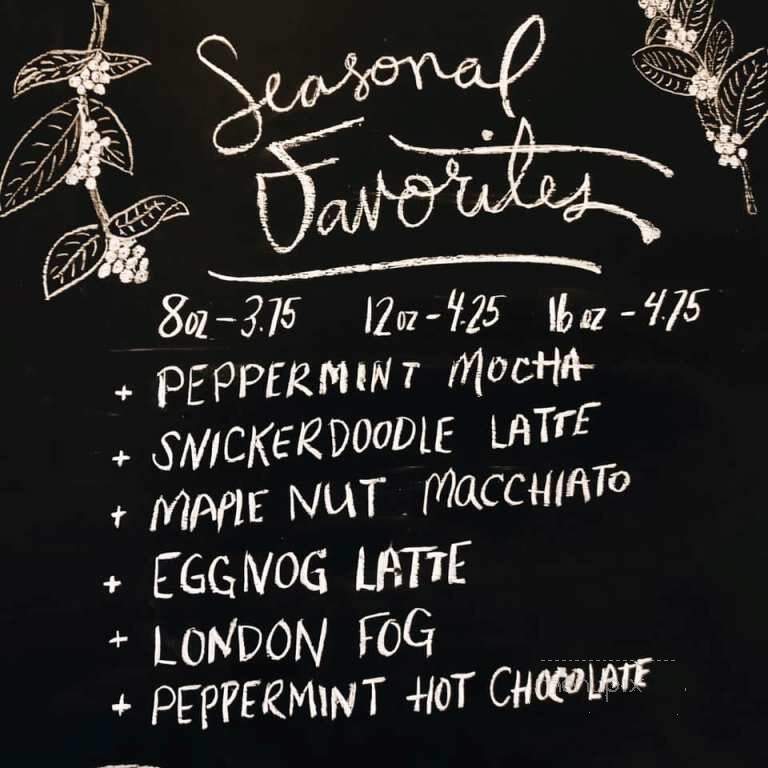 Seasonal
Favorites
8oz - 3.75 12oz - 4.25 16oz - 4.75
+ PEPPERMINT MOCHA
+ SNICKERDOODLE LATTE
+ MAPLE NUT MACCHIATO
+ EGGNOG LATTE
+ LONDON FOG
+ PEPPERMINT HOT CHOCOLATE